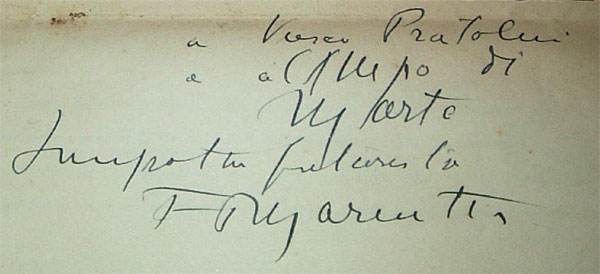 a Vasco Pratolini
e a Campo di
Marte
simpatia futurista
F T Marinetti